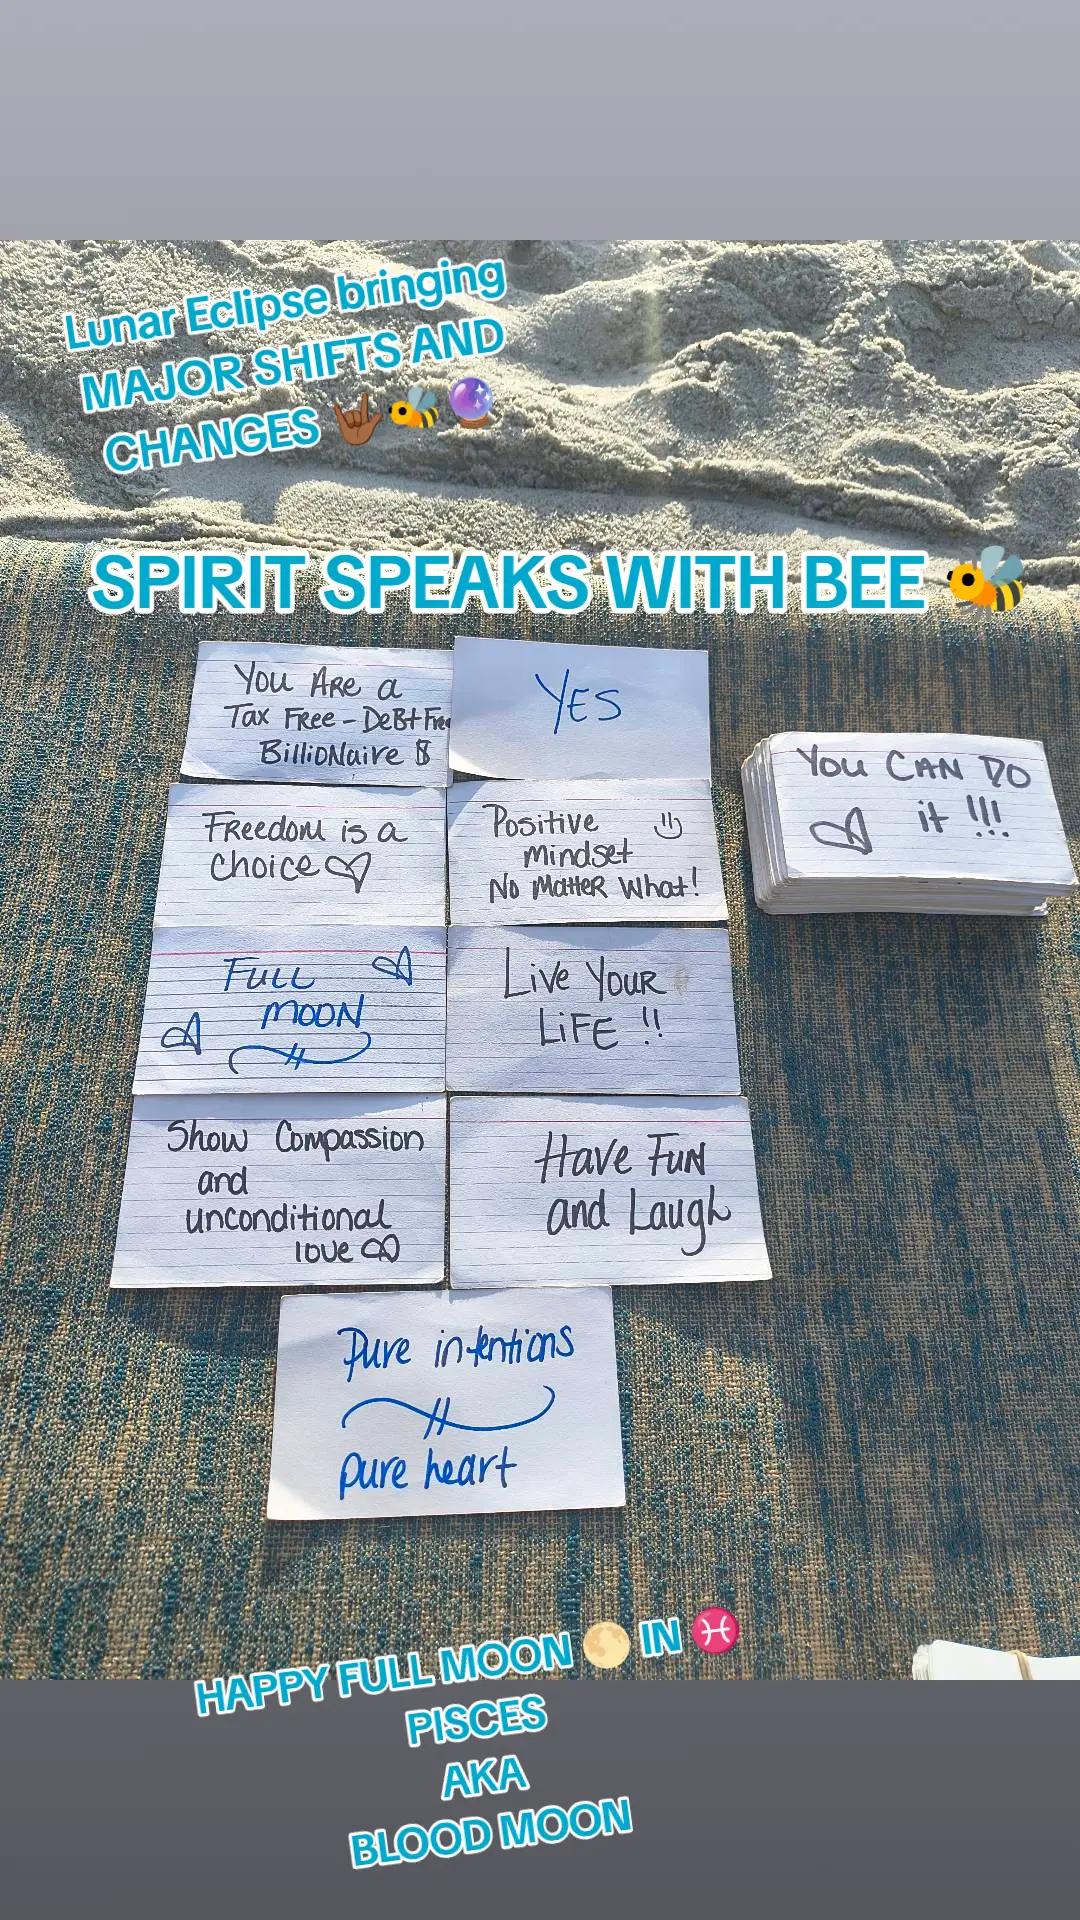 Lunar Eclipse bringing
MAJOR SHIFTS AND
CHANGES 🤟🏾🐝🔮
SPIRIT SPEAKS WITH BEE 🐝
You Are a
Tax Free - Debt Free
BillioNaire $
YES
Freedom is a
Choice ♡
Positive
mindset
No Matter What!
FULL
MOON
Live Your
LiFE !!
Show Compassion
and
unconditional
love ♡
Have Fun
and Laugh
Pure intentions
pure heart
You CAN DO
it !!!
HAPPY FULL MOON 🌕 IN ♓
PISCES
AKA
BLOOD MOON